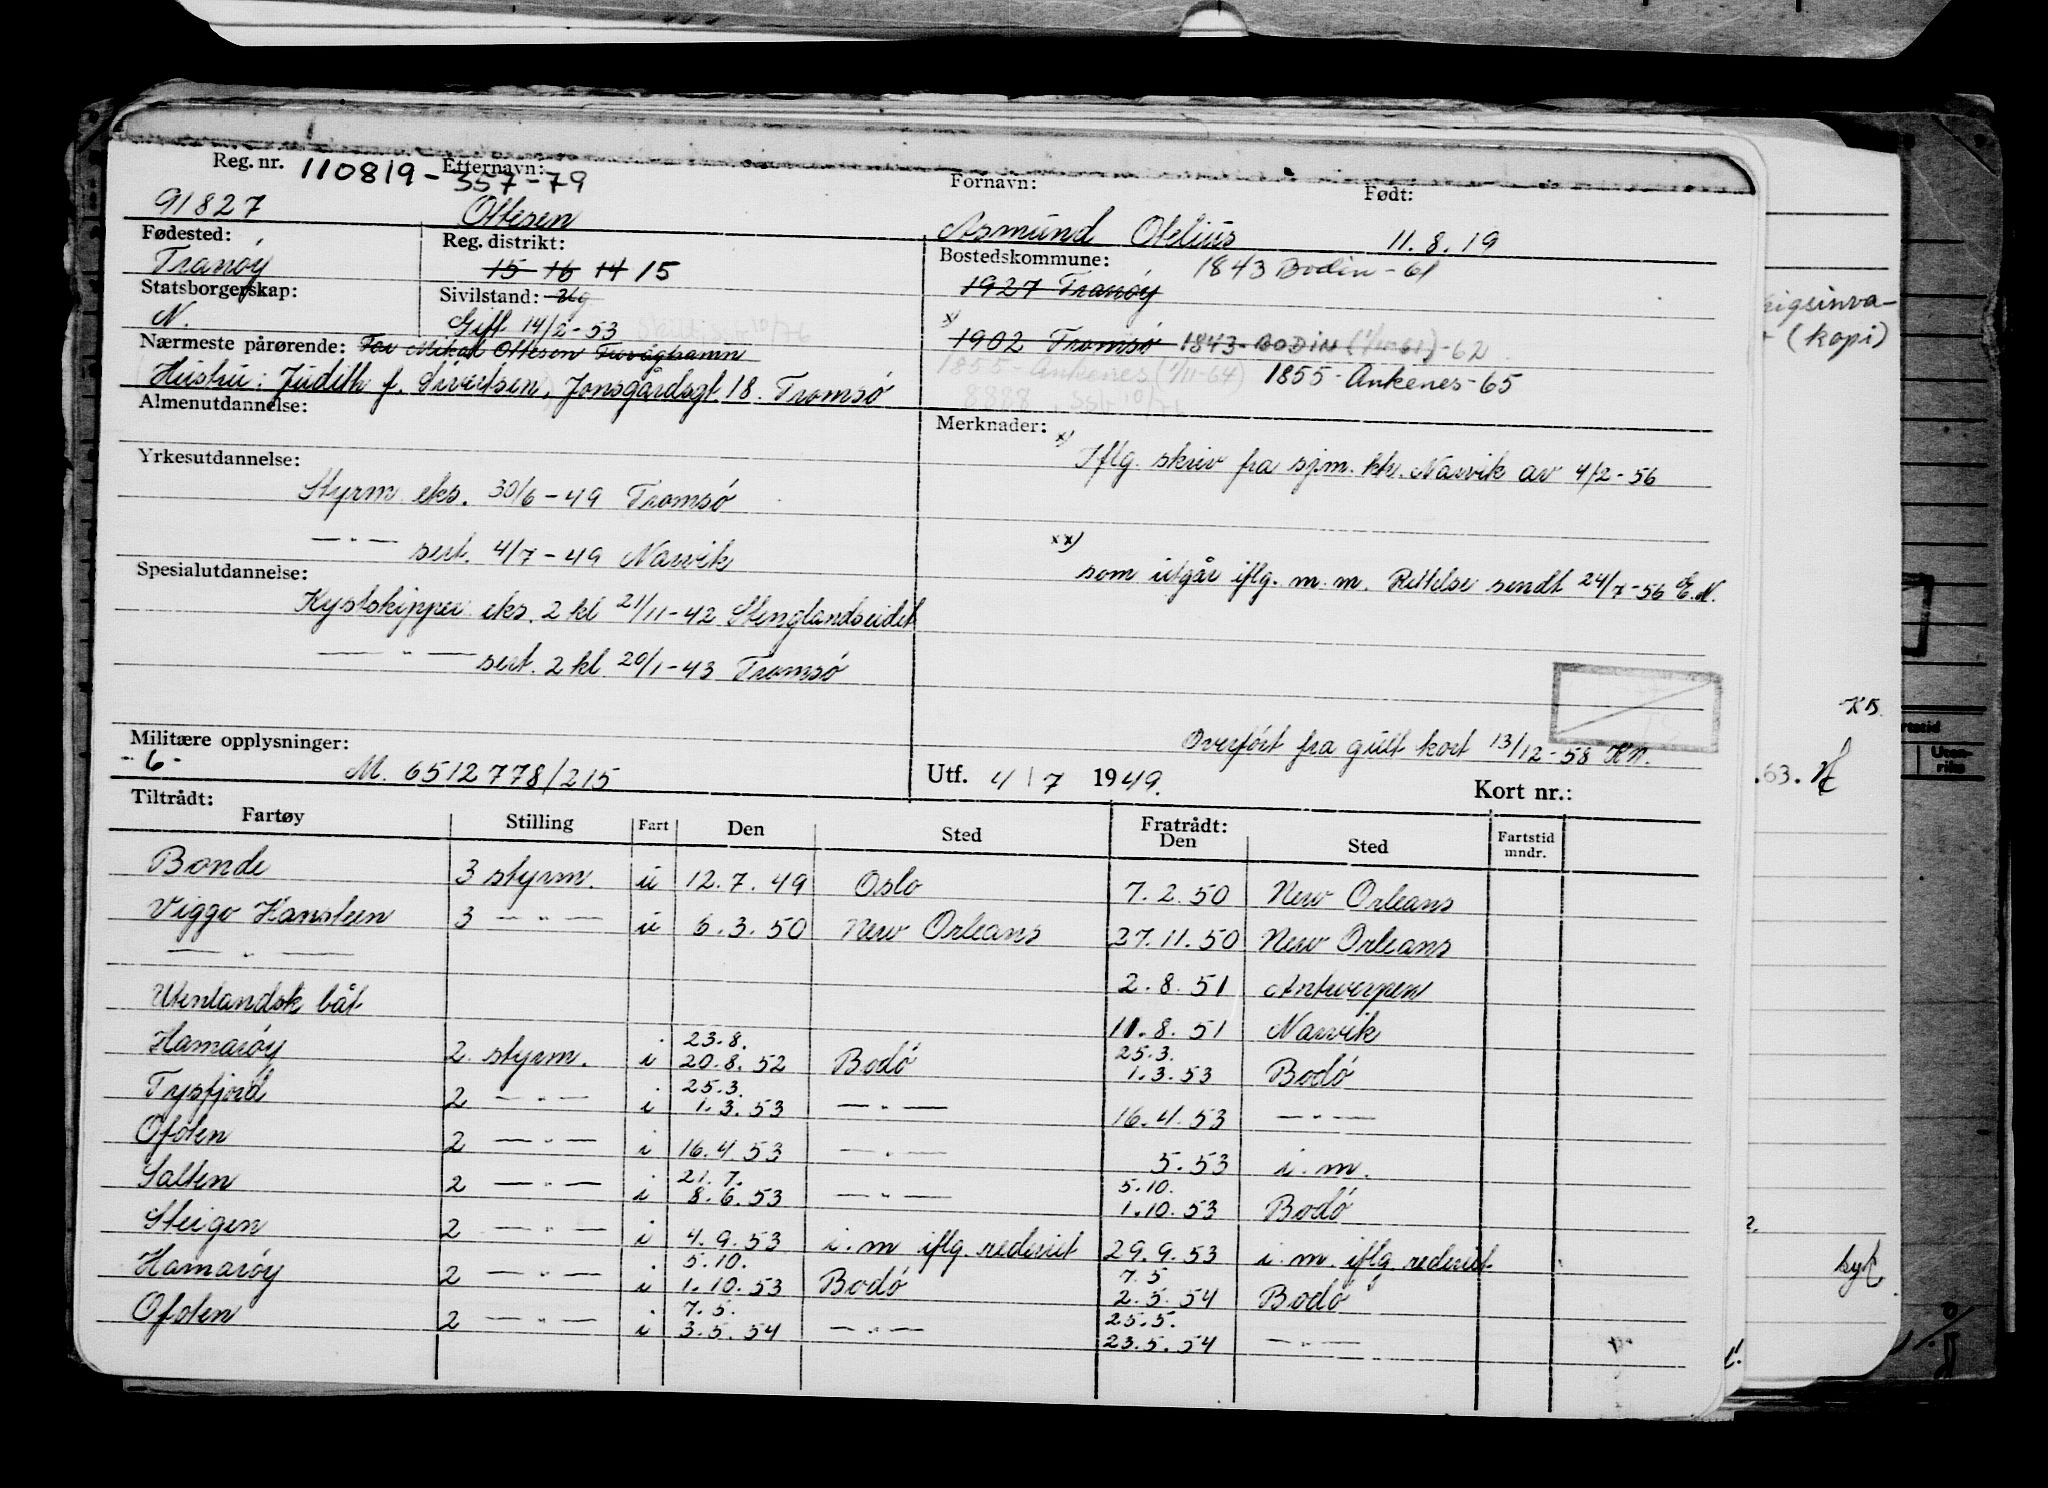 Reg. nr. 110819-357-79 Etternavn: Fornavn: Født:
91827 Ottesen Asmund Otelius 11.8.19
Fødested: Reg. distrikt: Bostedskommune: 1843 Bodin-61
Tranøy 15 16 14 15 1927 Tranøy
Statsborgerskap: Sivilstand: Ug
N. Gift 14/2-53
x) 1902 Tromsø 1843-BODIN (1/11-61)-62
Nærmeste pårørende: Far Mikal Ottesen Trovåghamn
Hustru: Judith f. Sivertsen, Jonsgårdsgt. 18. Tromsø
1855-Ankenes (1/11-64) 1855-Ankenes-65
Almenutdannelse: Merknader:
x) Iflg. skriv fra sjm. ktr. Narvik av 4/2-56
Yrkesutdannelse:
Styrm eks. 30/6-49 Tromsø
— " — sert. 4/7-49 Narvik
xx) som utgår iflg. m.m. Rettelse sendt 24/7-56 E.N.
Spesialutdannelse:
Kystskipper eks. 2 kl 21/11-42 Stenglandseidet
— " — sert. 2 kl 20/1-43 Tromsø
Overført fra gult kort 13/12-58 KN.
Militære opplysninger:
-6- M. 6512778/215 Utf. 4/7 1949. Kort nr.:
Tiltrådt: Fratrådt:
Fartøy Stilling Fart Den Sted Den Sted Fartstid mndr.
Bonde 3 styrm. u 12.7.49 Oslo 7.2.50 New Orleans
Viggo Hansteen 3 — " — u 6.3.50 New Orleans 27.11.50 New Orleans
— " — 2.8.51 Antwerpen
Utenlandsk båt 11.8.51 Narvik
23.8. 25.3.
Hamarøy 2. styrm. i 20.8.52 Bodø 1.3.53 Bodø
25.3.
Tysfjord 2 — " — i 1.3.53 — " — 16.4.53 — " —
Ofoten 2 — " — i 16.4.53 — " — 5.53 i.m.
21.7. 5.10.
Salten 2 — " — i 8.6.53 — " — 1.10.53 Bodø
Steigen 2 — " — i 4.9.53 i.m iflg. rederiet 29.9.53 i.m. iflg. rederiet
5.10. 7.5
Hamarøy 2 — " — i 1.10.53 Bodø 2.5.54 Bodø
7.5. 25.5.
Ofoten 2 — " — i 3.5.54 — " — 23.5.54 — " —
(kopi)
.63.